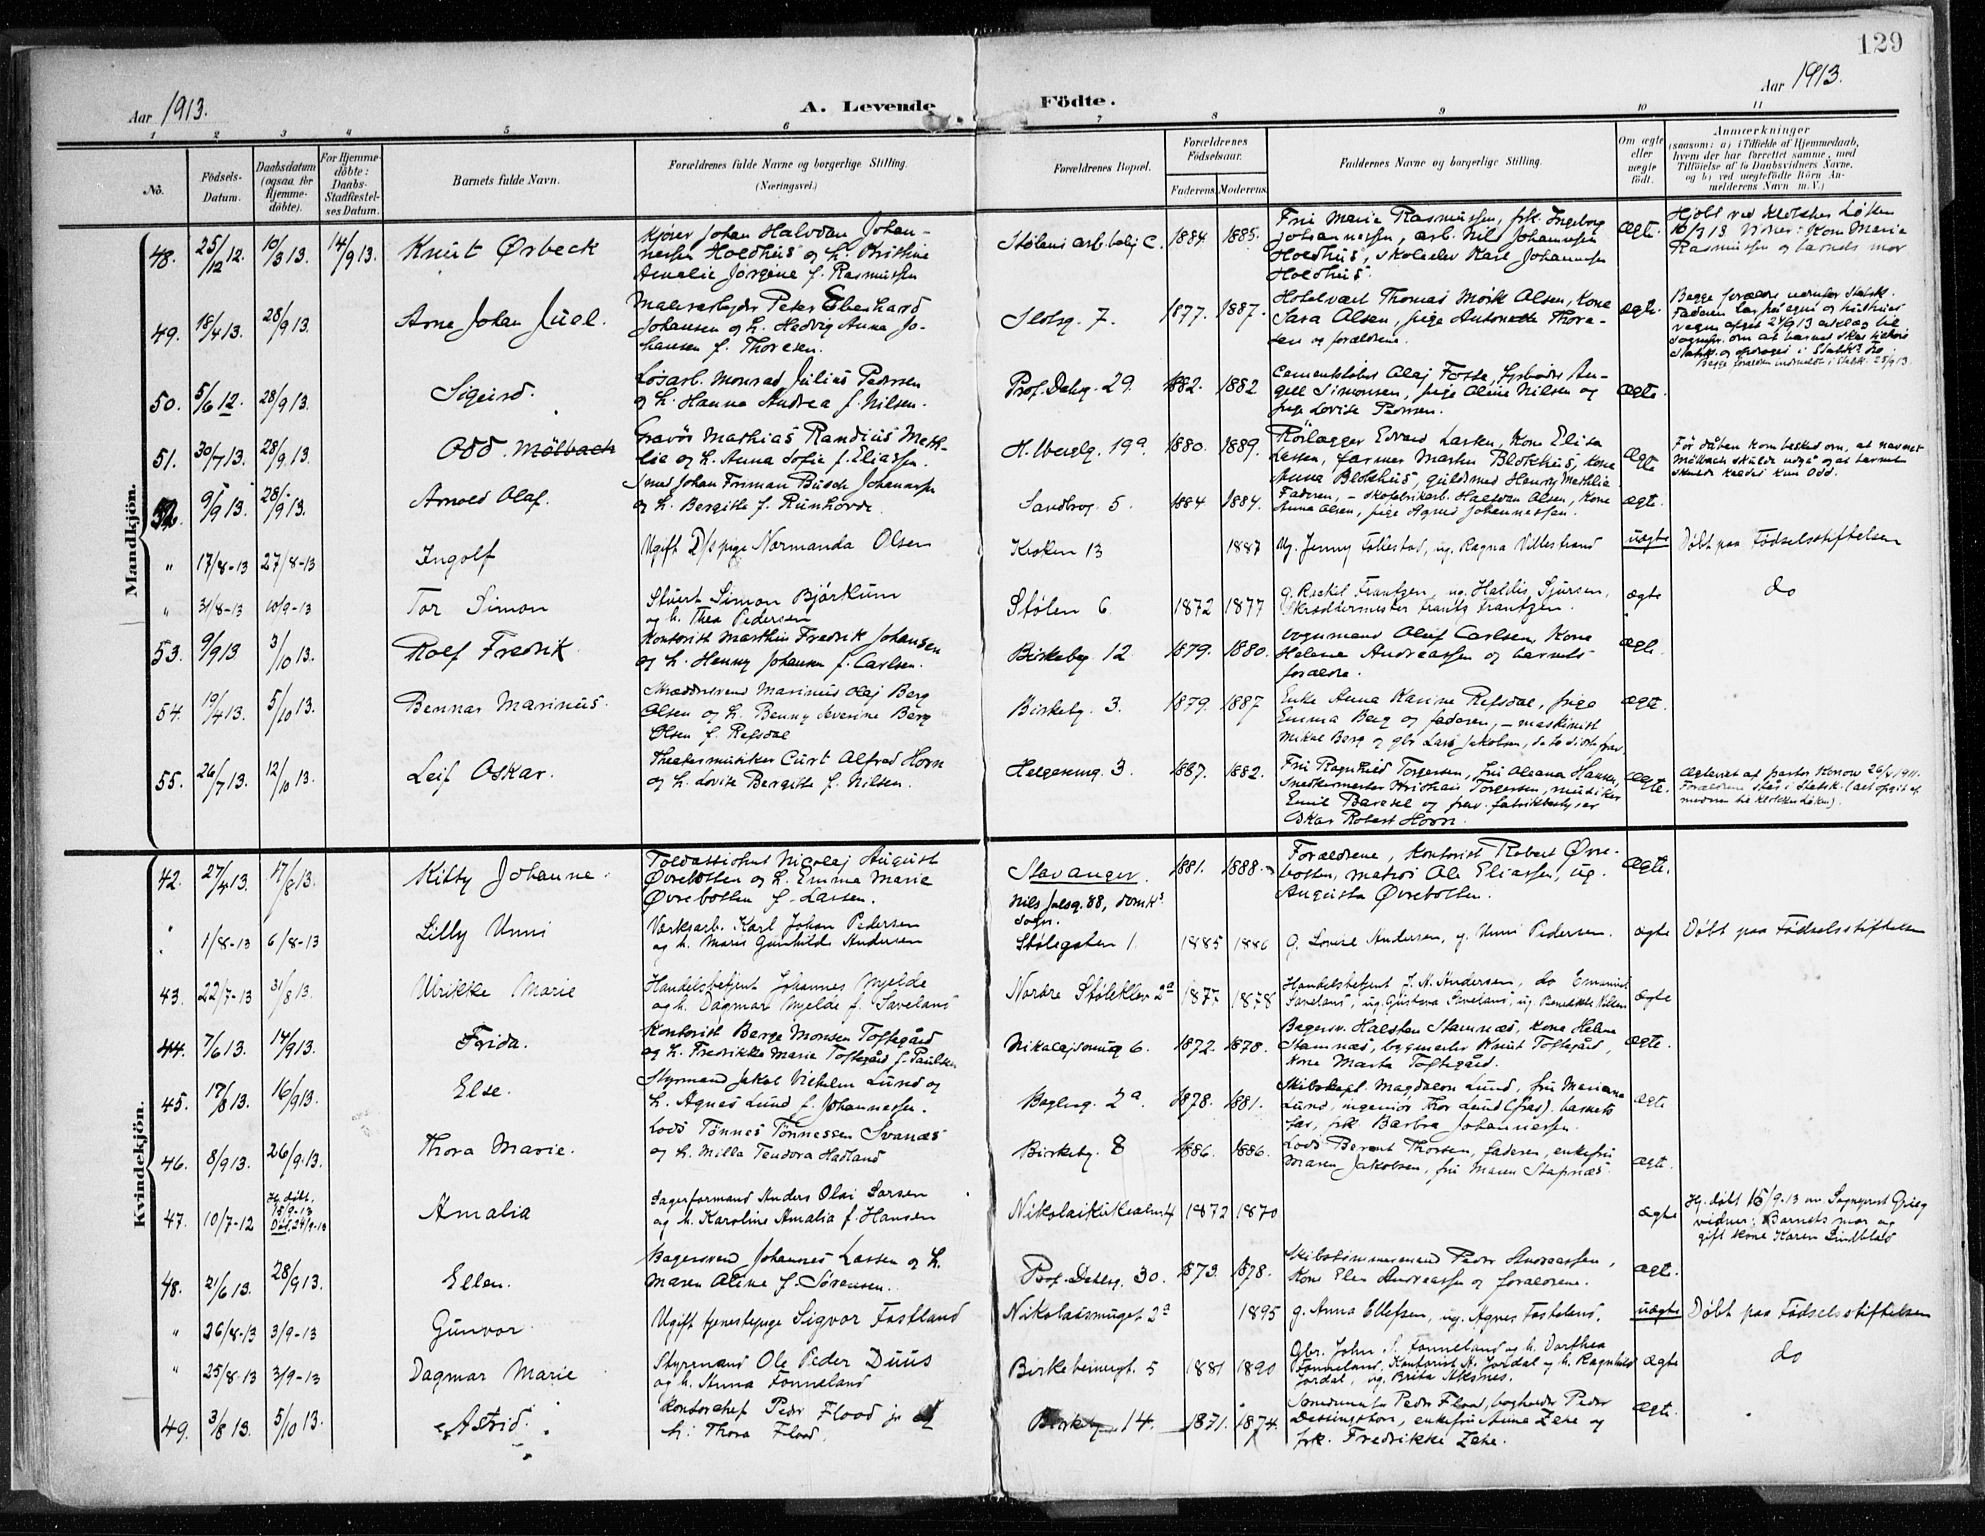 129
Aar 1913.
A. Levende Födte.
Aar 1913.
1 2 3 4 5 6 7 8 9 10 11
No.
Födsels-Datum.
Daabsdatum (ogsaa for Hjemme-döbte).
For Hjemme-döbte: Daabs-Stadfæstel-ses Datum.
Barnets fulde Navn.
Forældrenes fulde Navne og borgerlige Stilling.
(Næringsvei.)
Forældrenes Bopæl.
Forældrenes Födselsaar.
Faderens. Moderens.
Faddernes Navne og borgerlige Stilling.
Om ægte eller uægte födt.
Anmærkninger
(saasom: a) i Tilfælde af Hjemmedaab,
hvem der har forrettet samme, med
Tilföielse af to Daabsvidners Navne,
og b) ved uegtefödte Börn An-
melderens Navn m. V.)
Mandkjön.
48. 25/12 12. 10/3 13. 14/9 13. Knut Ørbeck
Kjører Johan Halvdan Johan-
nessen Holdhus og h. Kristine
Amalie Jørgine f. Rasmussen
Stølens arb.bolig C. 1884 1885.
Fru Marie Rasmussen, frk. Ingeborg
Johannessen, arb. Nils Johannessen
Holdhus, skoleelev Karl Johannessen
Holdhus.
Ægte.
Hjdbt ved klokker Løken
10/3 13 Vidner: Kone Marie
Rasmussen og barnets mor
49. 18/4 13. 28/9 13. Arne Johan Juel.
Malerarbeider Peter Eberhard
Johansen og h. Hedvig Anna Jo-
hansen f. Thoresen.
Slotsg. 7. 1877. 1887.
Hotelvært Thomas Mørk Olsen, Kone
Sara Olsen, pige Antonette Thore-
sen og forældrene.
ægte.
Begge forældre udenfor Statsk.
50. 5/6 12. 28/9 13. Sigurd.
Løsarb. Monrad Julius Pedersen
og h. Hanna Andrea f. Nilsen.
Prof. Dahlsg. 29. 1882. 1882
Cementstøber Olaf Fosse, Andre An-
gell Simonsen, pige Aline Nilsen og
pige Lovise Pedersen.
Ægte.
51. 30/7 13. 28/9 13. Odd. Mølbach
Gravør Mathias Randius Meth-
lie og h. Anna Sofie f. Eliassen.
H. Wesselsg. 19a. 1880. 1889.
Rørlægger Edvard Larsen, Kone Elisa
Larsen, farmer Martin Blokhus, Kone
Anna Blokhus, guldsmed Henry Methlie
Ægte
Før dåben kom besked om, at navnet
Mølbach skulde udgå og at barnet
skulde kaldes kun Odd.
52. 9/9 13. 28/9 13. Arnold Olaf.
Smed Johan Friman Busch Johannessen
og h. Bergitte f. Runhovde.
Sandbrog. 5. 1884 1884.
Faderen, – skofabrikarb. Halfdan Olsen, Kone
Anna Olsen, pige Agnes Johannessen.
Ægte.
" 17/8-13 27/8-13 Ingolf
Ugift pige Normanda Olsen
Kroken 13 1887
Ug. Jenny Tollestad, ug. Ragna Villestrand
uægte Døbt paa Fødselsstiftelsen
" 31/8-13 10/9-13 Tor Simon
Stuert Simon Bjørkum
og h. Thea Pedersen
Stølen 6 1872 1877
g. Rachel Frantzen, ug. Haldis Sjursen,
Skræddermester Frantz Frantzen.
ægte do
53. 9/9 13 3/10 13. Rolf Fredrik.
Kontorist Marthin Fredrik Johansen
og h. Henny Johansen f. Carlsen.
Birkebg. 12 1879. 1880.
Vognmand Oluf Carlsen, Kone
Helene Andreassen og barnets
forældre.
Ægte.
54. 19/4 13. 5/10 13. Bennar Marinus.
Skræddersvend Marinus Olaf Berg
Olsen og h. Benny Severine Berg
Olsen f. Refsdal
Birkebg. 3. 1879. 1887
Enke Anna Karine Refsdal, pige
Emma Berg og faderen, – maskinist
Mikal Berg og gbr. Lars Jakobsen,
Ægte.
55. 26/7 13. 12/10 13. Leif Oskar.
Theatermusiker Curt Alfred Horn
og h. Lovise Bergitte f. Nilsen.
Helgesensg. 3. 1887. 1882.
Fru Ragnhild Torgersen, fru Oleana Hansen,
Snedkermester Kristian Torgersen, musiker
Emil Barekel og frav. fabrikbestyrer
Oskar Robert Horn.
Ægte.
Ægteviet af pastor Konow 26/6 1911.
Forældrene står i Statsk. (det opgit af
moderen til klokker Løken).
Kvindekjön.
42. 27/4 13. 17/8 13. Kitty Johanne.
Toldassistent Nicolaj August
Øvrebotten og h. Emma Marie
Øvrebotten f. Larsen.
Stavanger.
Nils Juelsg. 88, domk's
sogn.
1881. 1888.
Forældrene, Kontorist Robert Øvre-
botten, matros Ole Eliassen, ug.
Augusta Øvrebotten.
Ægte.
" 1/8-13 6/8-13 Lilly Unni
Verksarb. Karl Johan Pedersen
og h. Marie Gunhilde Andersen
Stølegaten 1. 1885 1886
g. Lovise Andersen, g. Unni Pedersen.
ægte Døbt paa Fødselsstiftelsen
43. 22/7-13 31/8 13. Ulrikke Marie
Handelsbetjent Johannes Mjelde
og h. Dagmar Mjelde f. Sæveland
Nordre Stølekleiv 2a 1877 1878
Handelsbetjent J. N. Andersen, do Emanuel
Sæveland, ug. Gustava Sæveland, ug. Benedikte Nilsen
ægte
44. 7/6 13. 14/9 13. Frida.
Kontorist Berge Monsen Toftegård
og h. Fredrikke Marie Toftegård f. Paulsen
Nikolajsmug 6. 1872. 1878.
Bagersv. Halsten Stamnæs, Kone Helene
Stamnæs, bygmester Knut Toftegård,
Kone Marta Toftegård.
Ægte.
45. 17/8 13. 16/9 13. Else.
Styrmand Jakob Vilhelm Lund og
h. Agnes Lund f. Johannessen.
Baglerg. 2a. 1878. 1881.
Skibskapt. Magdalon Lund, fru Mariane
Lund, ingeniør Thor Lund (frav). barnets
far, frk. Barbra Johannessen.
Ægte
46. 8/9 13. 26/9 13. Thora Marie.
Lods Tønnes Tønnessen Svanæs
og h. Milla Teodora Hadland
Birkebg. 8 1886. 1886.
Lods Berent Thorsen, faderen, enkefru
Maren Jakobsen, fru Maren Stapnæs.
Ægte.
47. 10/7-12 Hj. døbt. 15/9-13 Døbt 24/9-13 Amalia
Lagerformand Anders Olai Larsen
og h. Karoline Amalia f. Hansen
Nikolaikirkealm. 4 1872 1870
ægte
Hj. døbt 15/9-13 av Sogneprest Grieg
vidner: Barnets mor og
gift kone Karen Lindblad
48. 21/6 13. 28/9 13. Ellen.
Bagersvend Johannes Larsen og h.
Maren Aline f. Sørensen.
Prof. Dahlsg. 30. 1873. 1878.
Skibstømmermand Peder Andreassen,
Kone Elen Andreassen og forældrene.
Ægte.
" 26/8-13 3/9-13 Gunvor
Ugift tjenestepige Sigvor Fastland
Nikolaismuget 2a 1895
g. Anna Ellefsen, ug. Agnes Fasteland.
uægte Døbt paa Fødselsstiftelsen
" 25/8-13 3/9-13 Dagmar Marie
Styrmand Ole Peder Duus
og h. Anna Fonneland
Birkebeinergt. 5 1881 1890
Gbr. John S. Fonneland og h. Dorthea
Fonneland, Kontorist N. Jordal og h. Ragnhild
Jordal, ug. Brita Aksnes.
ægte do
49. 3/8 13. 5/10 13. Astrid.
Kontorchef Peder Flood jr og
h. Thora Flood.
Birkebg 14. 1871. 1874.
Peder Flood, bogholder Peder
enkefru Anna Zehe og
frk. Fredrikke Zehe.
Ægte.